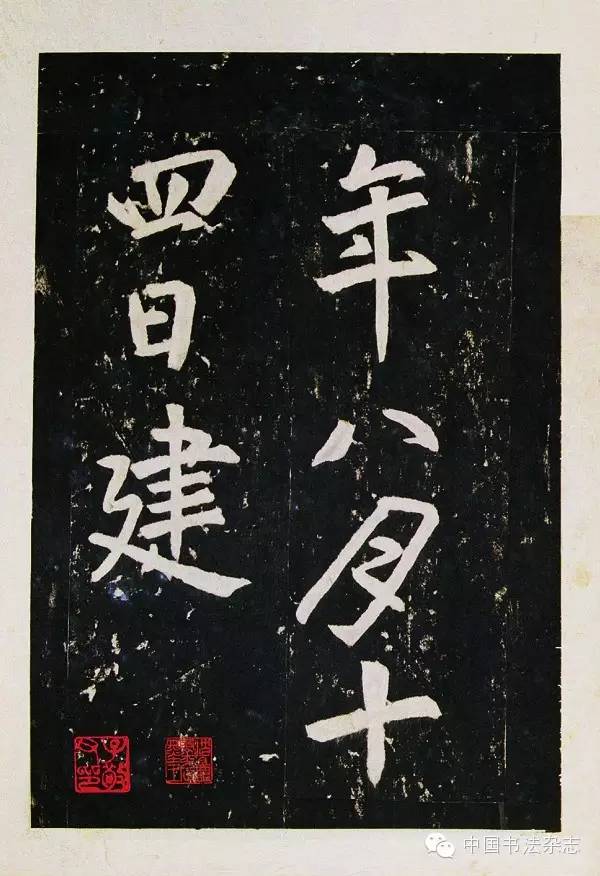 年八月十
四日建
中国书法杂志